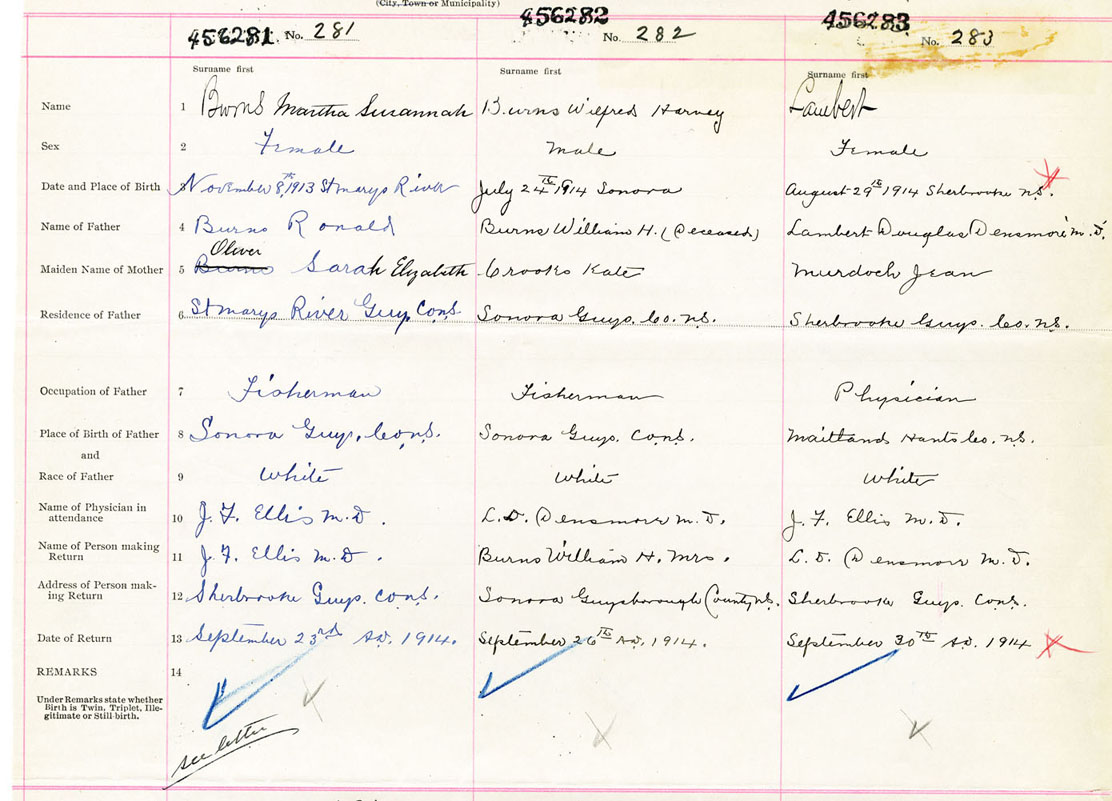 (City, Town or Municipality)
456281 No. 281 456282 No. 282 456283 No. 283
Surname first Surname first Surname first
Name 1 Burns Martha Susannah Burns Wilfred Harvey Lambert
Sex 2 Female Male Female
Date and Place of Birth 3 November 8th, 1913 St marys River July 24th 1914 Sonora August 29th 1914 Sherbrooke N.S.
Name of Father 4 Burns Ronald Burns William H. (Deceased) Lambert Douglas Densmore M.D.
Oliver
Maiden Name of Mother 5 Burns Sarah Elizabeth Crooks Kate Murdoch Jean
Residence of Father 6 St marys River Guys Co N.S. Sonora Guys. Co. N.S. Sherbrooke Guys. Co. N.S.
Occupation of Father 7 Fisherman Fisherman Physician
Place of Birth of Father 8 Sonora Guys. Co N.S. Sonora Guys. Co N.S. Maitland Hants Co. N.S.
and
Race of Father 9 White White White
Name of Physician in
attendance 10 J. F. Ellis M.D. L. D. Densmore M.D. J. F. Ellis M.D.
Name of Person making
Return 11 J. F. Ellis M.D. Burns William H. Mrs. L. D. Densmore M.D.
Address of Person mak-
ing Return 12 Sherbrooke Guys. Co N.S. Sonora Guysborough County N.S. Sherbrooke Guys. Co N.S.
Date of Return 13 September 23rd A.D. 1914. September 26th A.D. 1914. September 30th A.D. 1914
REMARKS 14
Under Remarks state whether
Birth is Twin, Triplet, Ille-
gitimate or Still-birth.
see letter